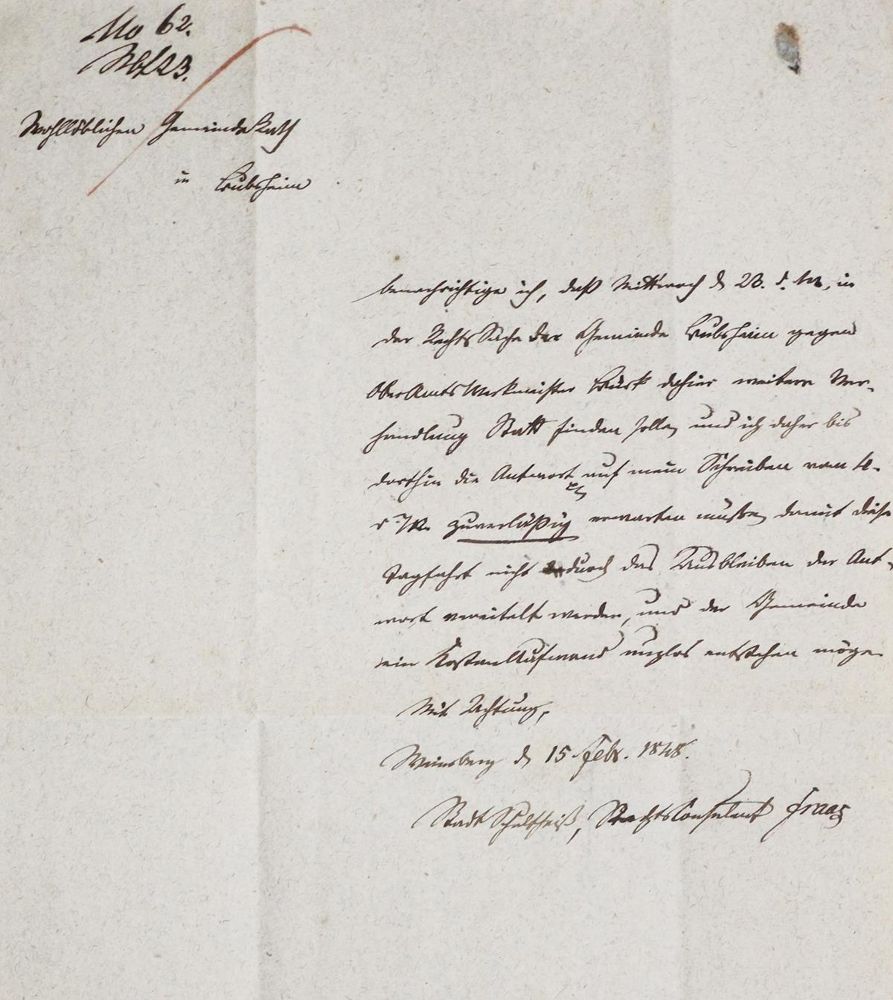 No 62.
Wohllöblichen GemeindeRath
in
benachrichtige ich, daß Mittwoch d 23. d. M. in
der RechtsSache der Gemeinde gegen
OberAmtsWerkmeister dahier weitere Ver-
handlung Statt finden solle, und ich daher bis
dorthin die Antwort auf mein Schreiben vom 4.
zuverläßig erwarten müsse, damit diese
Tagfahrt nicht durch das Ausbleiben der Ant-
wort vereitelt werden, und der Gemeinde
ein KostenAufwand nuzlos entstehen möge.
Mit Achtung,
Weinsberg d 15 Febr. 1848.
StadtSchultheiß, RechtsConsulent Fraas